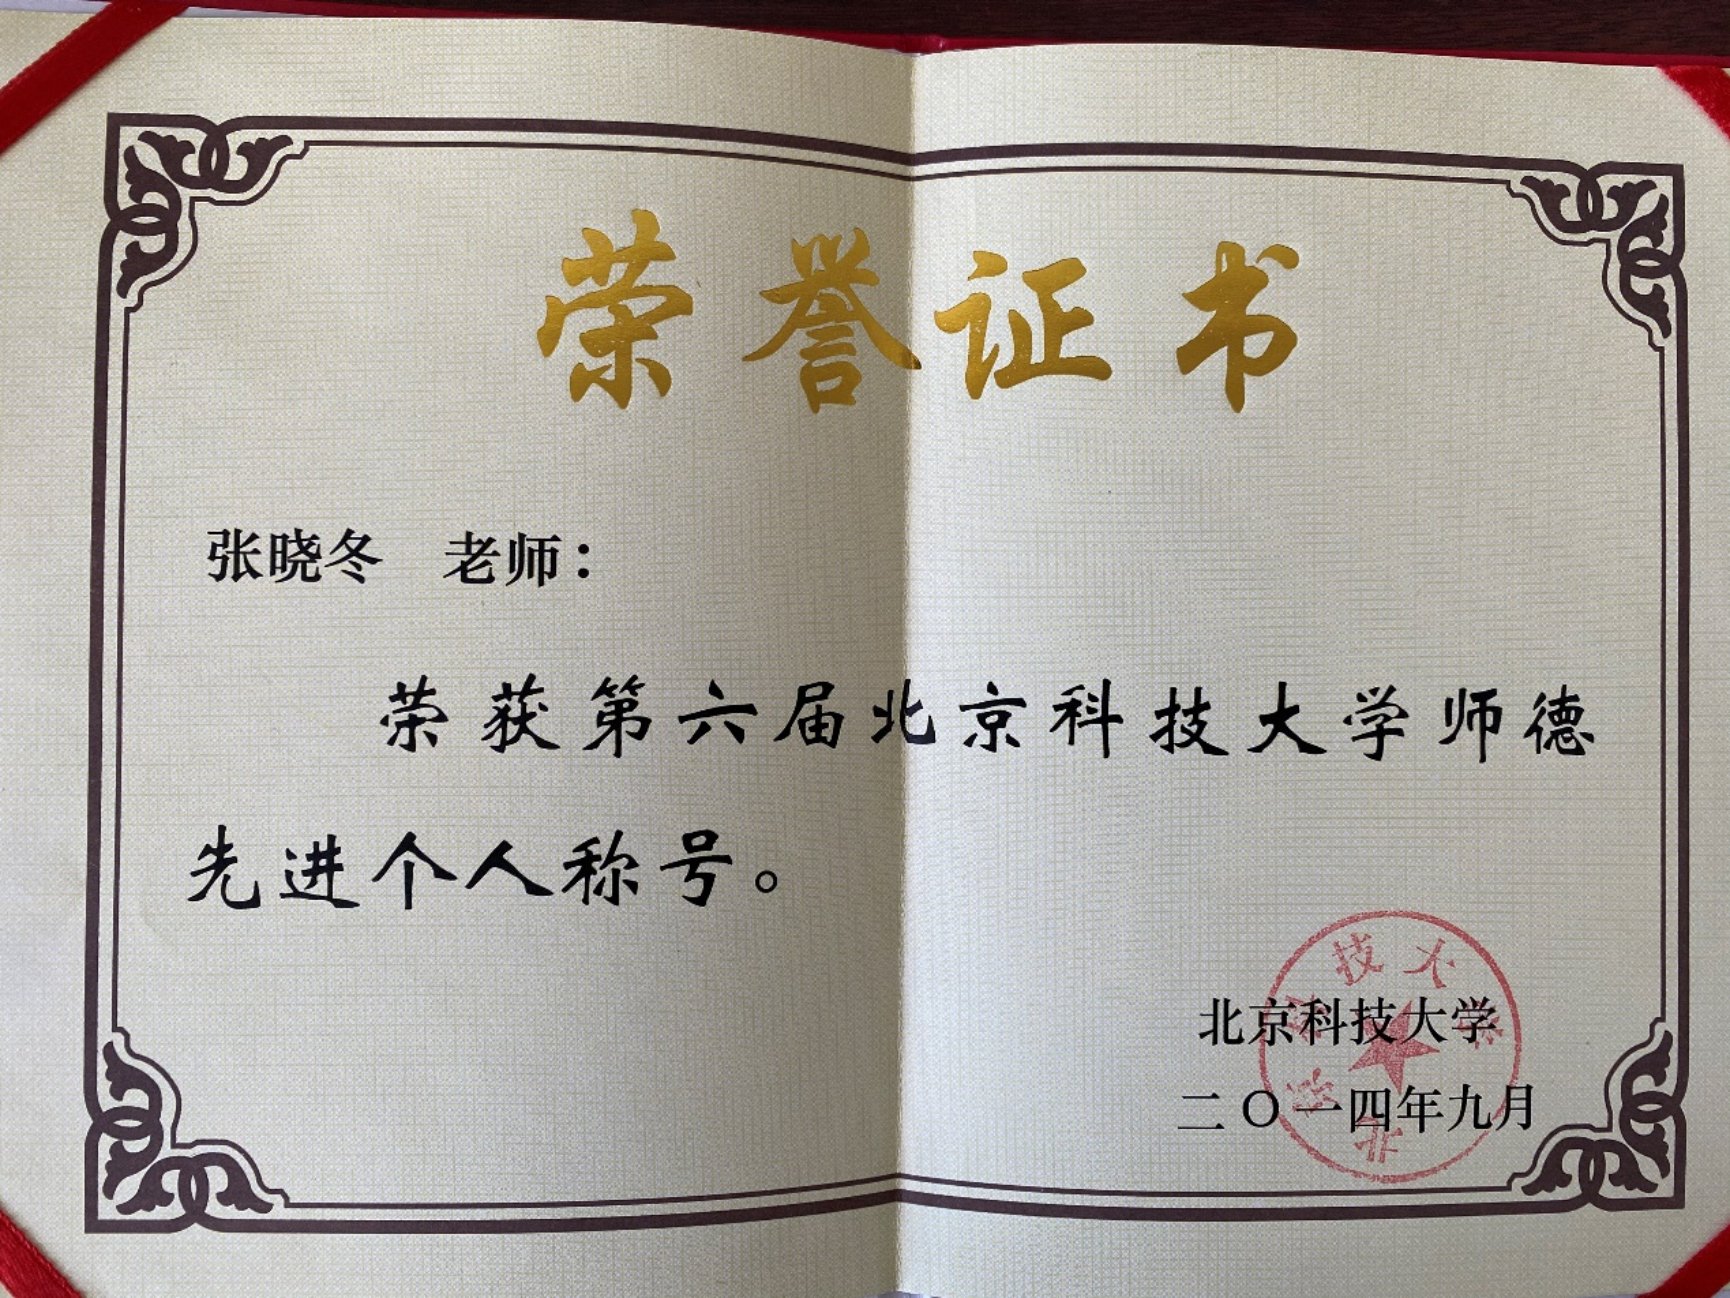 荣誉证书
张晓冬 老师：
荣获第六届北京科技大学师德
先进个人称号。
北京科技大学
二〇一四年九月
北京科技大学